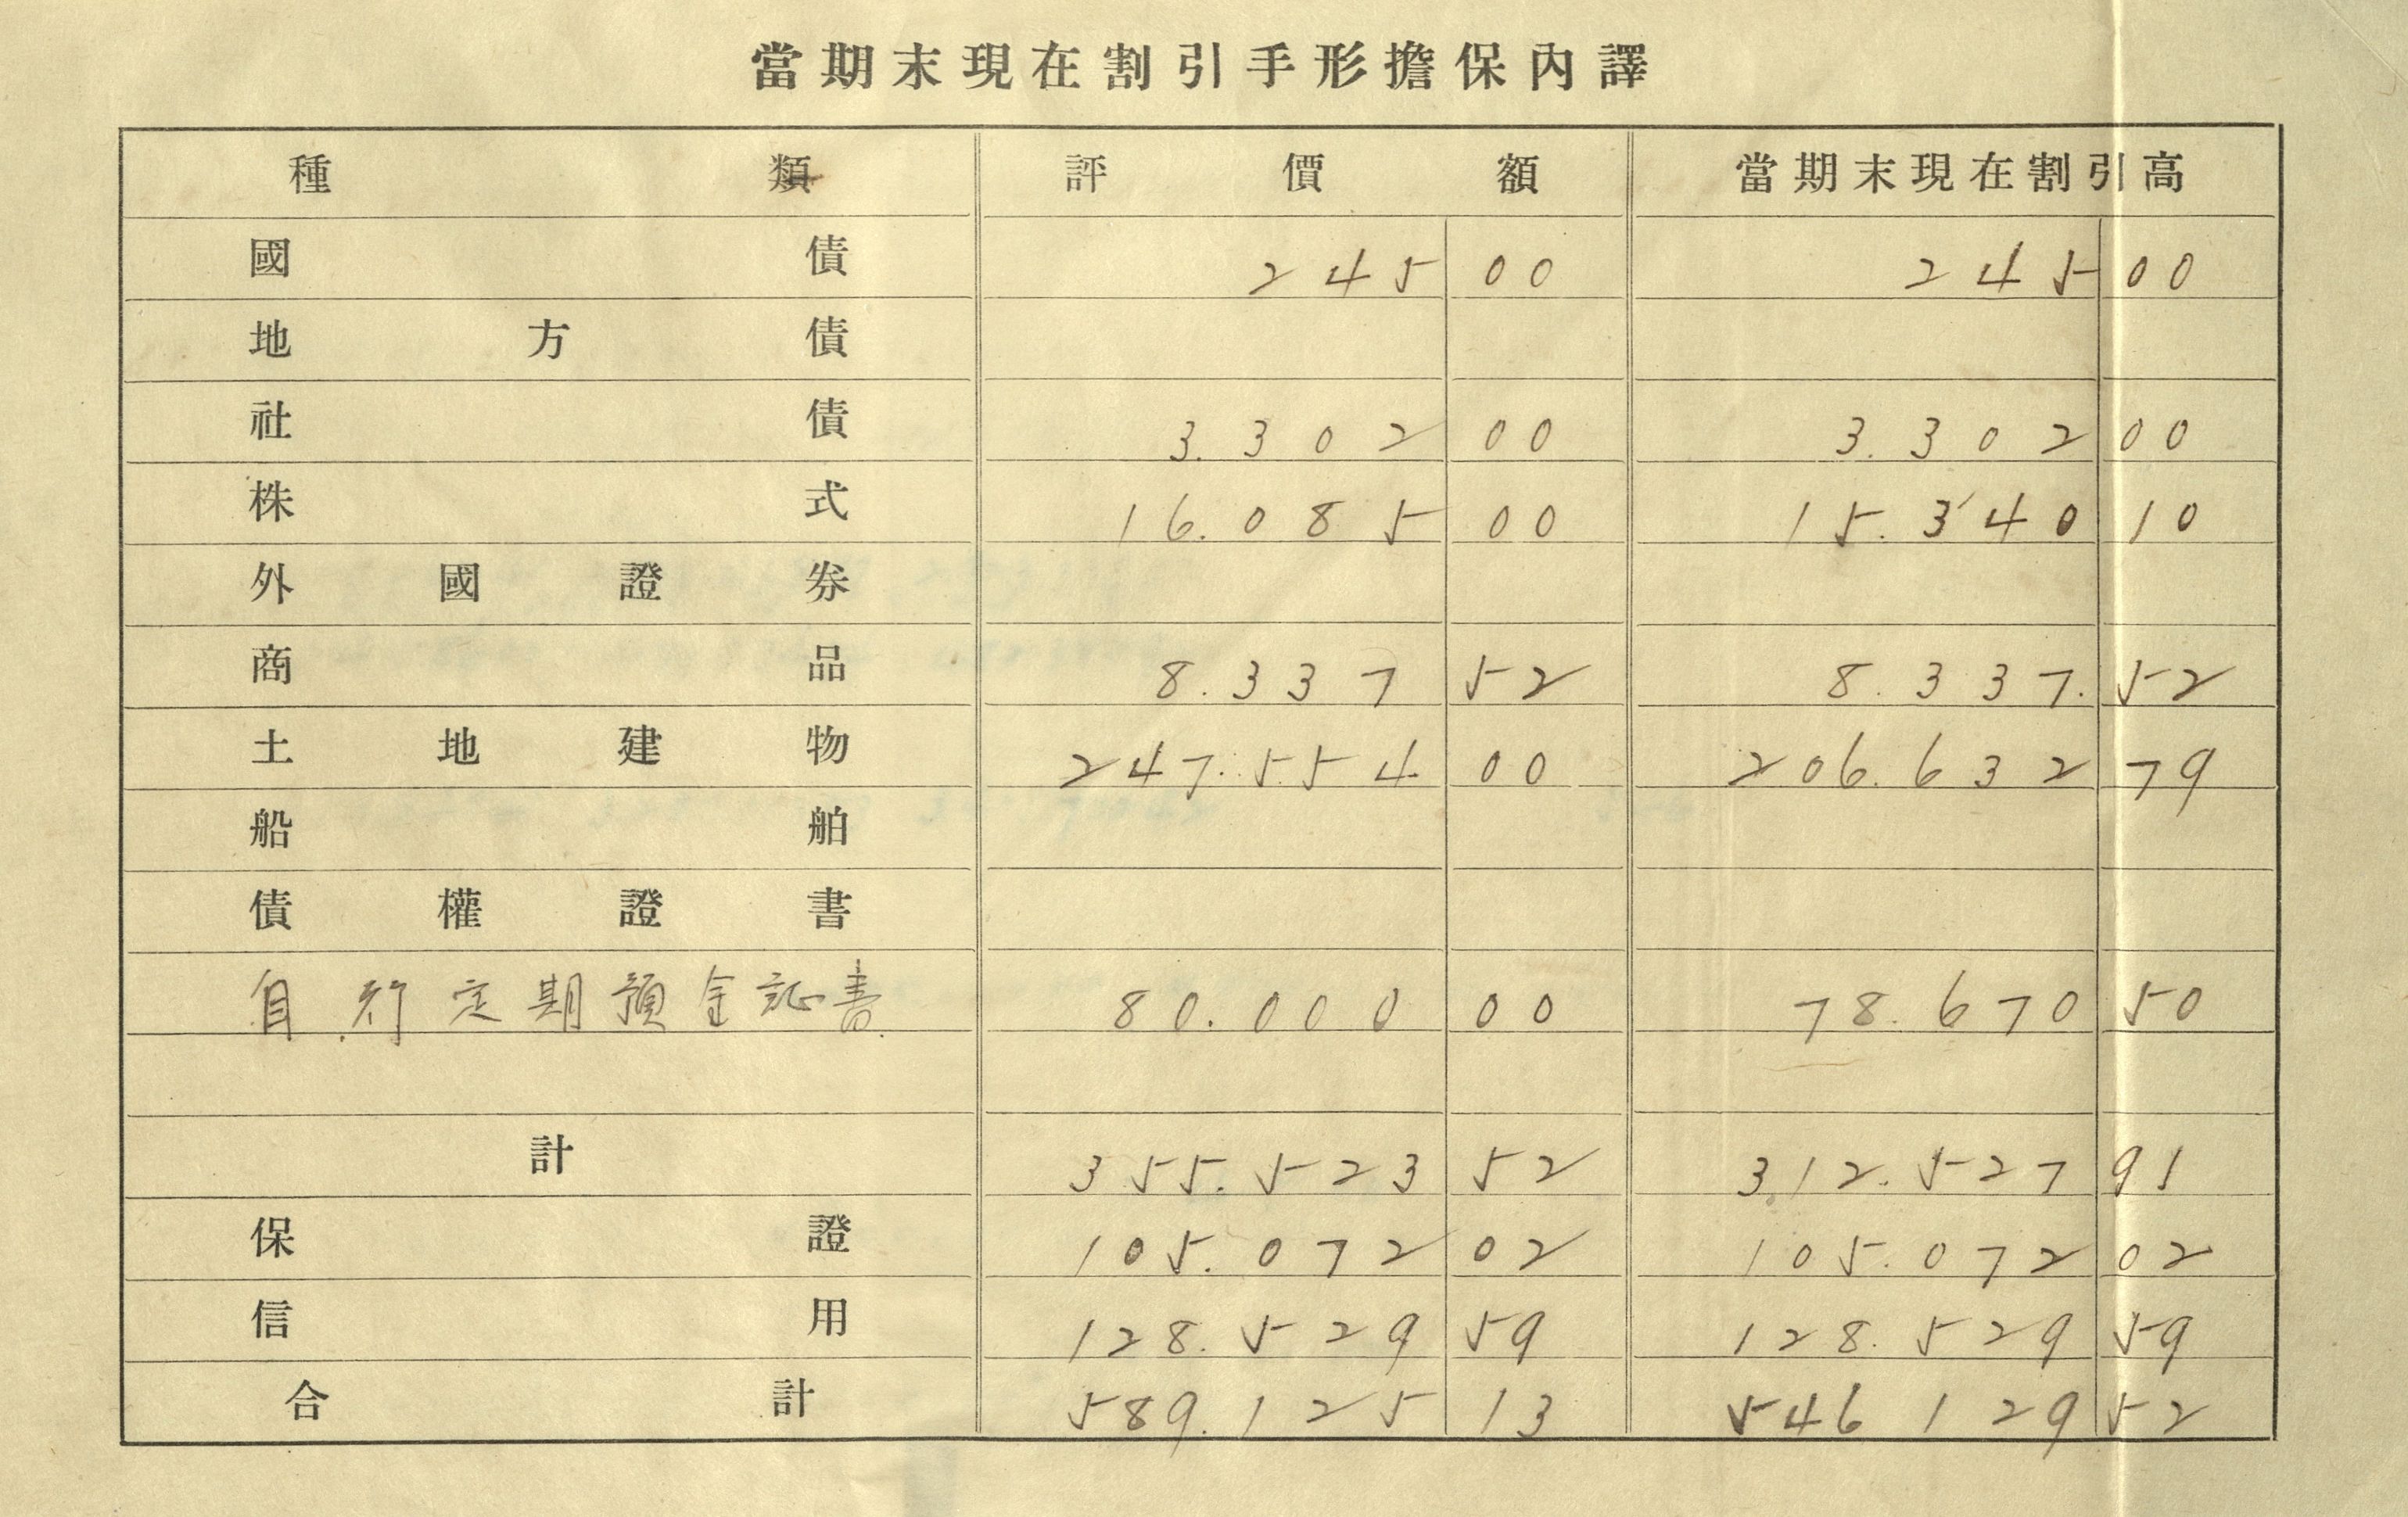 當期末現在割引手形擔保內譯
種類 評價額 當期末現在割引高
國債 245 00 245 00
地方債
社債 3.302 00 3.302 00
株式 16.085 00 15.340 10
外國證券
商品 8.337 52 8.337.52
土地建物 247.554 00 206.632 79
船舶
債權證書
自行定期預金証書 80.000 00 78.670 50
計 355.523 52 312.527 91
保證 105.072 02 105.072 02
信用 128.529 59 128.529 59
合計 589.125 13 546 129 52